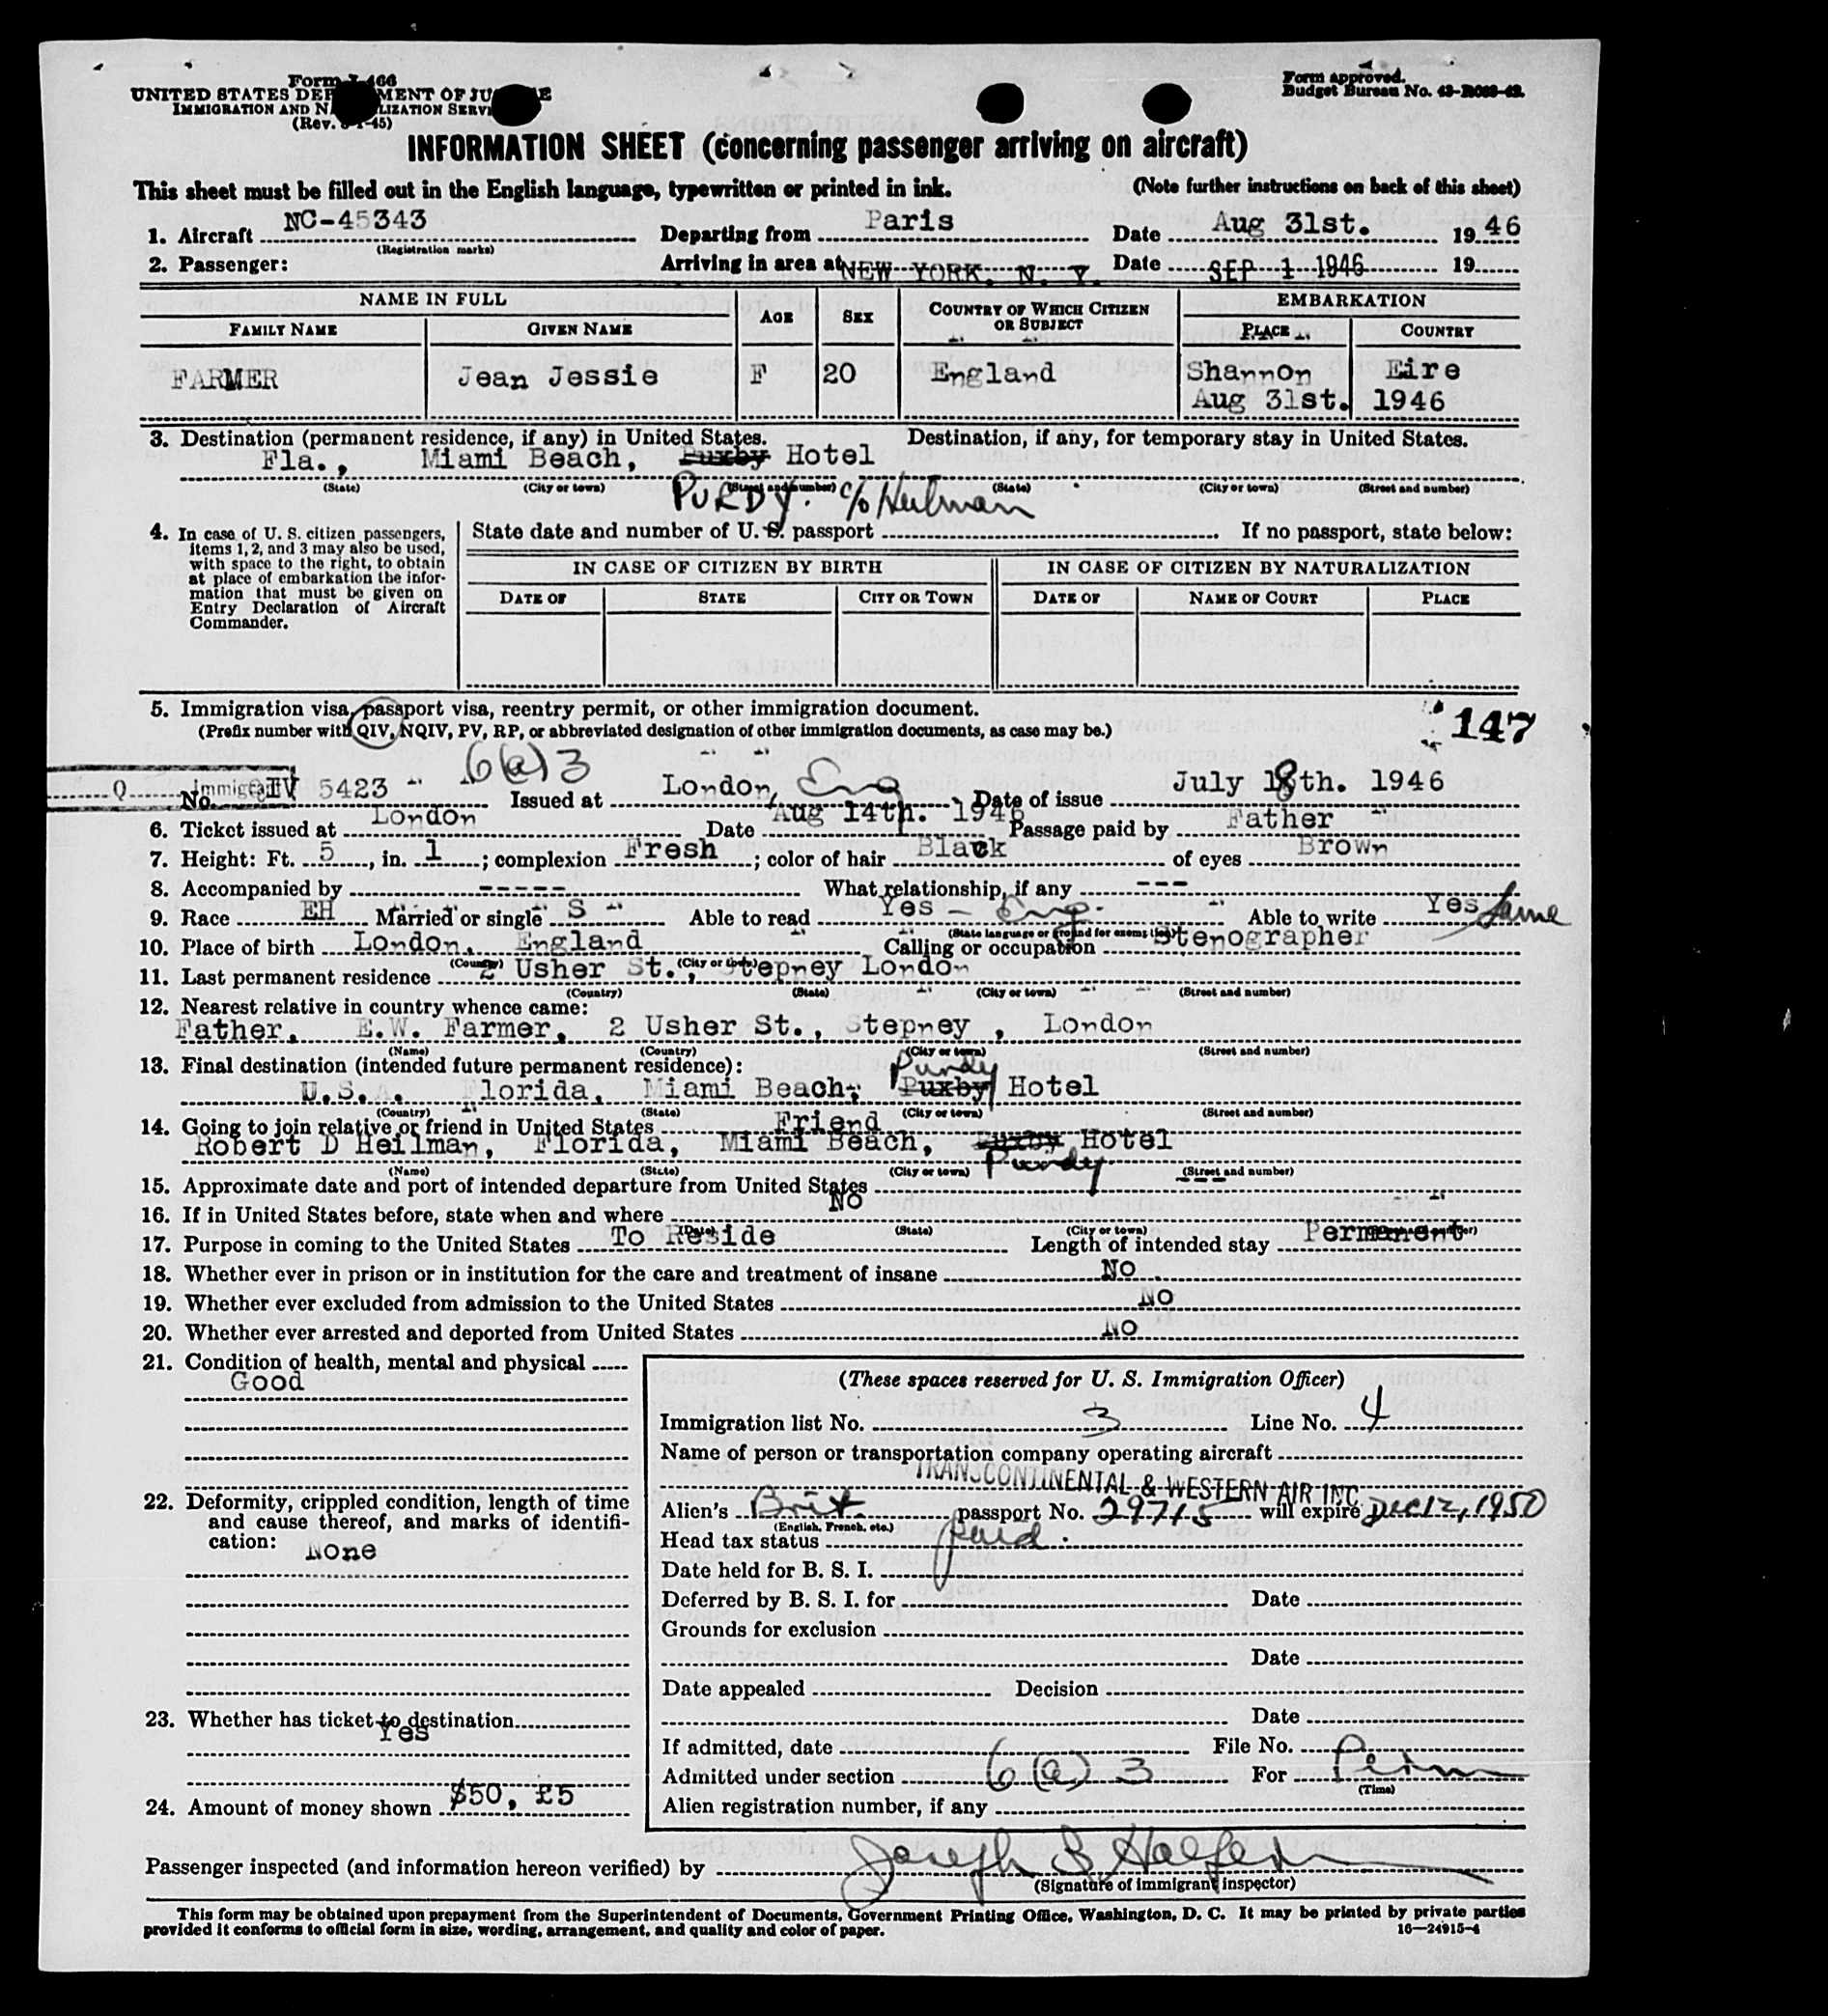 Form I-466
UNITED STATES DEPARTMENT OF JUSTICE
IMMIGRATION AND NATURALIZATION SERVICE
(Rev. 8-1-45)
Form approved.
Budget Bureau No.
INFORMATION SHEET (concerning passenger arriving on aircraft)
This sheet must be filled out in the English language, typewritten or printed in ink. (Note further instructions on back of this sheet)
1. Aircraft NC-45343 Departing from Paris Date Aug 31st. 1946
(Registration marks)
2. Passenger: Arriving in area at NEW YORK, N. Y. Date SEP 1 1946 19
NAME IN FULL AGE SEX COUNTRY OF WHICH CITIZEN OR SUBJECT EMBARKATION
FAMILY NAME GIVEN NAME PLACE COUNTRY
FARMER Jean Jessie F 20 England Shannon Eire
Aug 31st. 1946
3. Destination (permanent residence, if any) in United States. Destination, if any, for temporary stay in United States.
Fla., Miami Beach, Puxby Hotel
(State) (City or town) (Street and number) (State) (City or town) (Street and number)
PURDY. c/o Heilman
4. In case of U. S. citizen passengers, items 1, 2, and 3 may also be used, with space to the right, to obtain at place of embarkation the information that must be given on Entry Declaration of Aircraft Commander.
State date and number of U. S. passport If no passport, state below:
IN CASE OF CITIZEN BY BIRTH IN CASE OF CITIZEN BY NATURALIZATION
DATE OF STATE CITY OR TOWN DATE OF NAME OF COURT PLACE
5. Immigration visa, passport visa, reentry permit, or other immigration document.
(Prefix number with QIV, NQIV, PV, RP, or abbreviated designation of other immigration documents, as case may be.)
147
6(a)3
Q Immigra IV
No. 5423 Issued at London, Eng Date of issue July 18th. 1946
6. Ticket issued at London Date Aug 14th. 1946 Passage paid by Father
7. Height: Ft. 5, in. 1; complexion Fresh; color of hair Black of eyes Brown
8. Accompanied by ----- What relationship, if any ---
9. Race EH Married or single S Able to read Yes – Eng. Able to write Yes Same
(State language or ground for exemption)
10. Place of birth London, England Calling or occupation Stenographer
(Country) (City or town)
11. Last permanent residence 2 Usher St., Stepney London
(Country) (State) (City or town) (Street and number)
12. Nearest relative in country whence came:
Father, E.W. Farmer, 2 Usher St., Stepney , London
(Name) (Country) (City or town) (Street and number)
13. Final destination (intended future permanent residence):
Purdy
U.S.A. Florida, Miami Beach, Puxby Hotel
(Country) (State) (City or town) (Street and number)
14. Going to join relative or friend in United States Friend
Robert D Heilman, Florida, Miami Beach, Puxby Hotel
(Name) (State) (City or town) (Street and number)
Purdy
15. Approximate date and port of intended departure from United States ---
16. If in United States before, state when and where No
(Date) (State) (City or town) (Street and number)
17. Purpose in coming to the United States To Reside Length of intended stay Permanent
18. Whether ever in prison or in institution for the care and treatment of insane No
19. Whether ever excluded from admission to the United States No
20. Whether ever arrested and deported from United States No
21. Condition of health, mental and physical
Good
22. Deformity, crippled condition, length of time and cause thereof, and marks of identification:
None
23. Whether has ticket to destination
Yes
24. Amount of money shown $50, £5
(These spaces reserved for U. S. Immigration Officer)
Immigration list No. 3 Line No. 4
Name of person or transportation company operating aircraft
TRANSCONTINENTAL & WESTERN AIR INC
Alien's Brit. passport No. 29715 will expire Dec 12, 1950
(English, French, etc.)
Head tax status paid.
Date held for B. S. I.
Deferred by B. S. I. for Date
Grounds for exclusion
Date
Date appealed Decision
Date
If admitted, date File No.
Admitted under section 6(a) 3 For Perm
(Time)
Alien registration number, if any
Passenger inspected (and information hereon verified) by Joseph
(Signature of immigrant inspector)
This form may be obtained upon prepayment from the Superintendent of Documents, Government Printing Office, Washington, D. C. It may be printed by private parties
provided it conforms to official form in size, wording, arrangement, and quality and color of paper. 16—24915-4